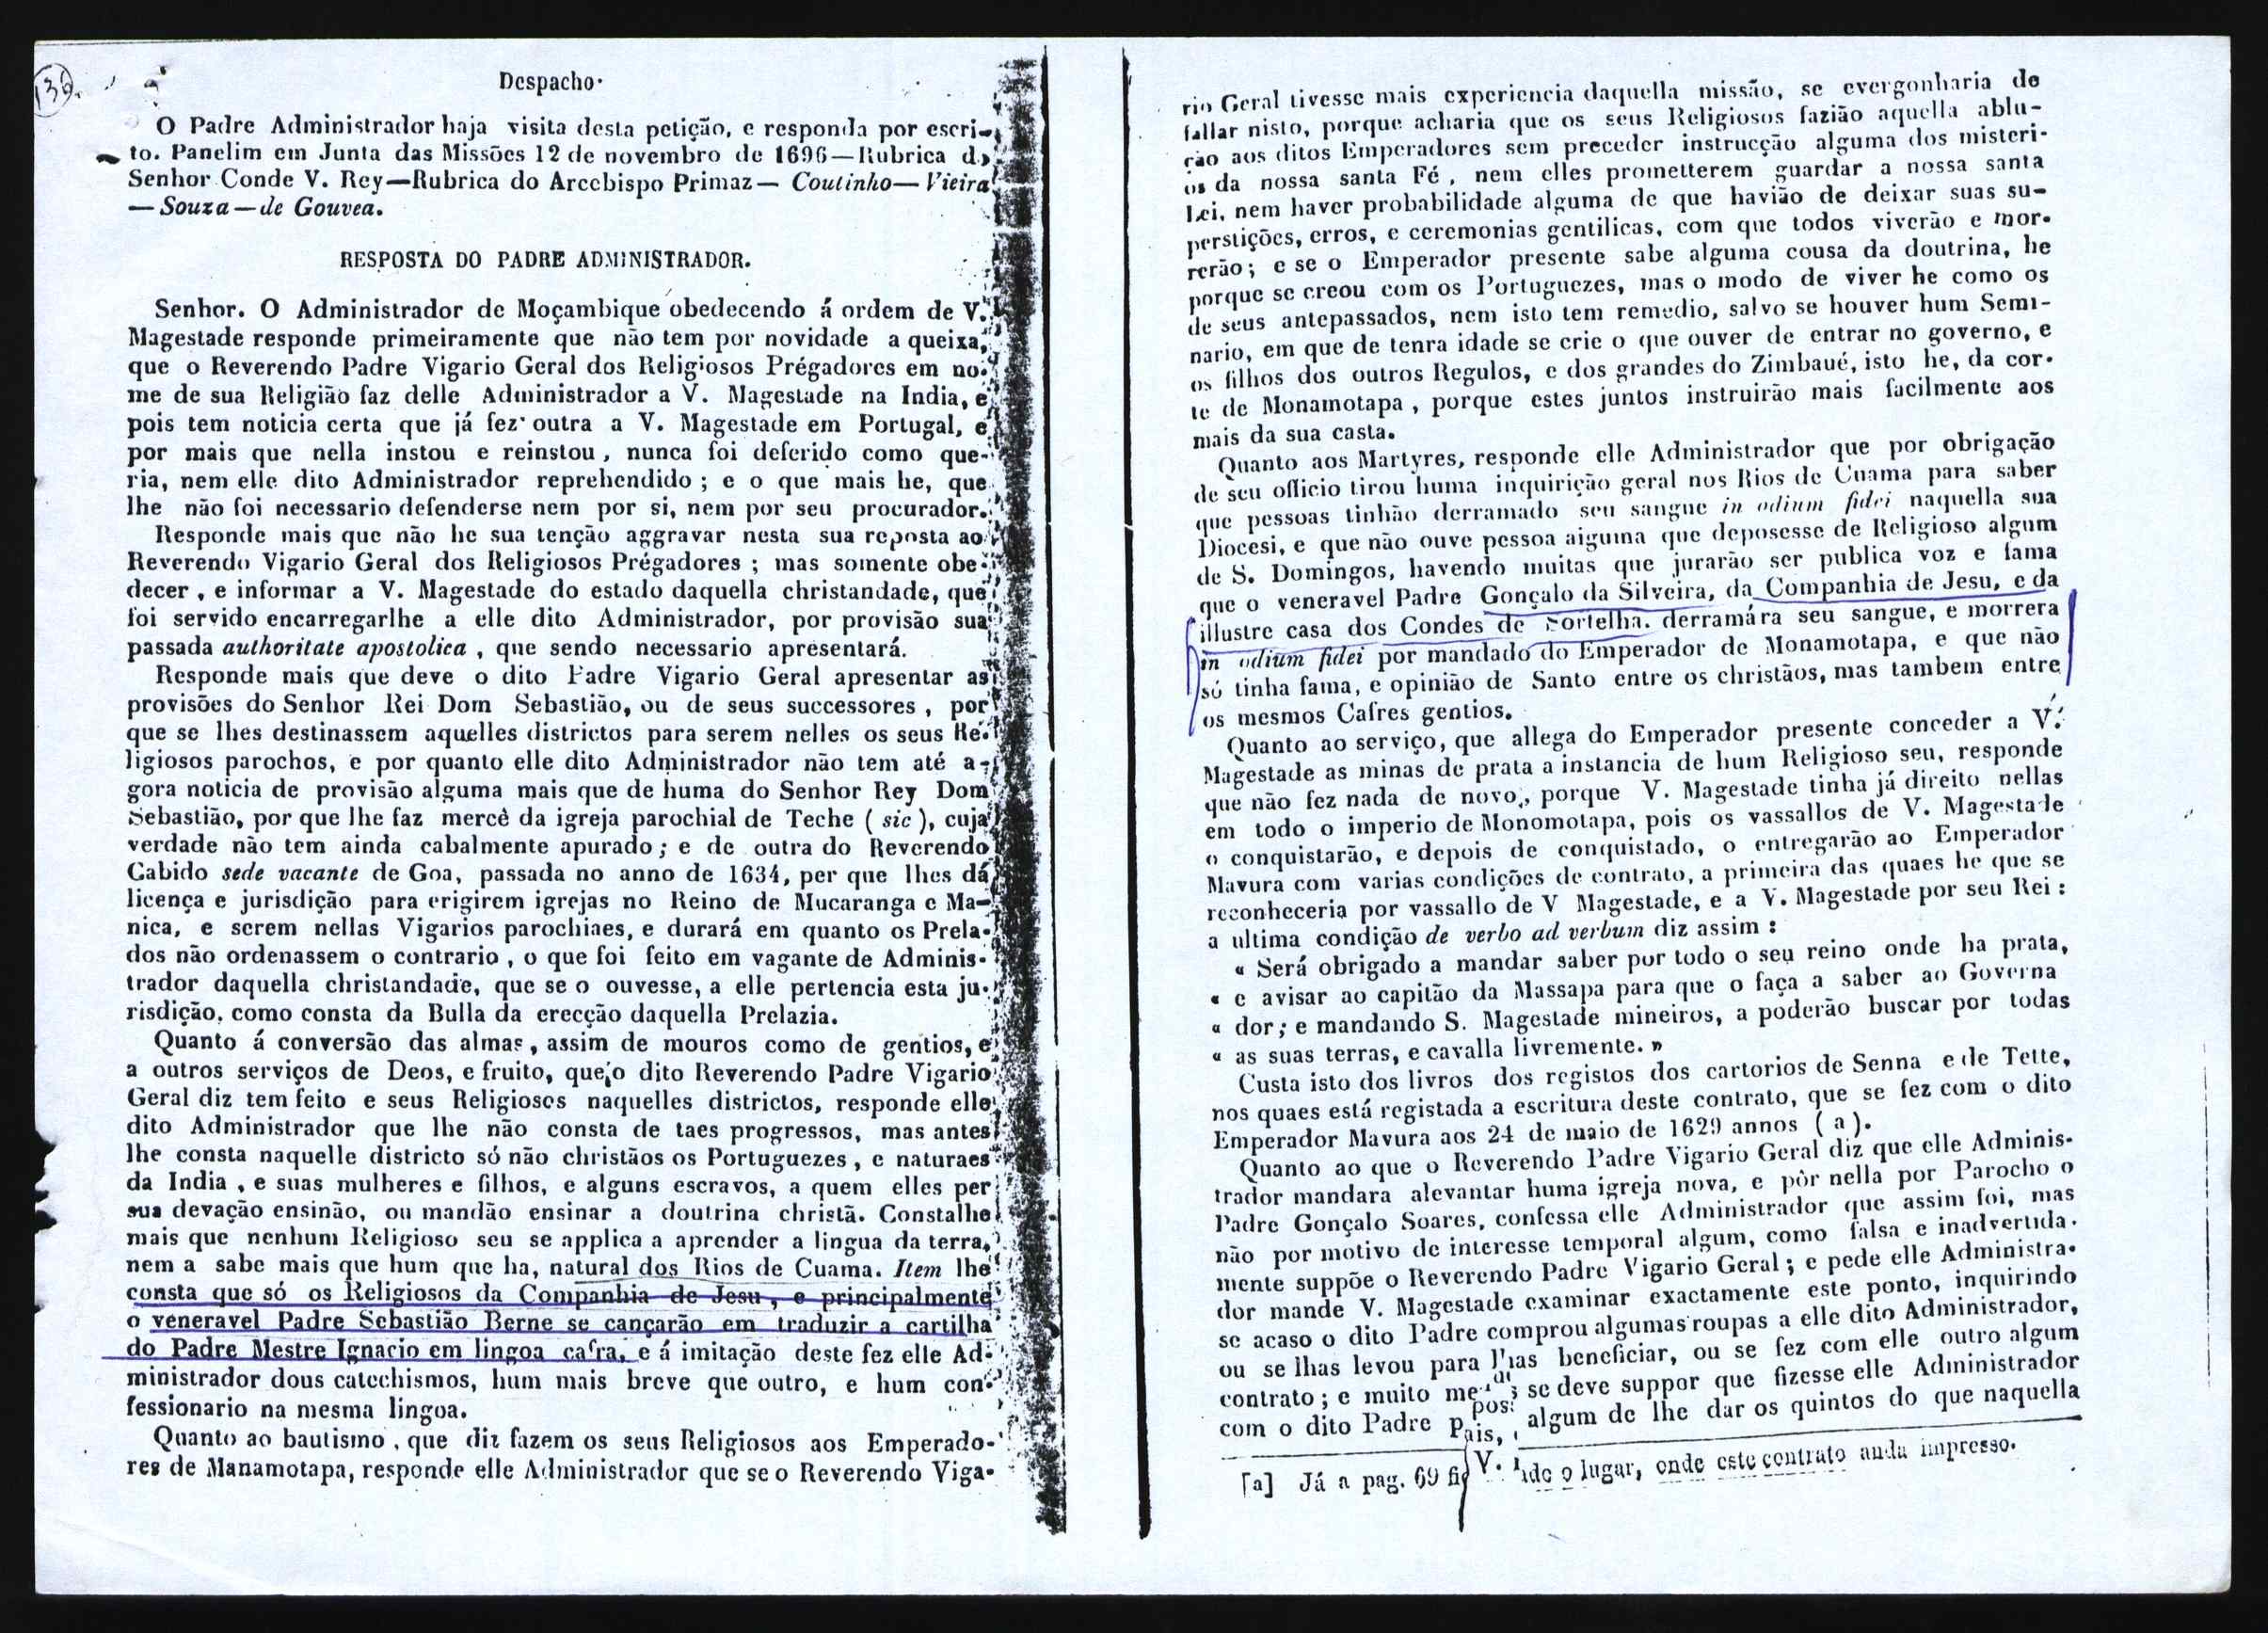 136
Despacho.
O Padre Administrador haja visita desta petição, e responda por escri-
to. Panelim em Junta das Missões 12 de novembro de 1696—Rubrica do
Senhor Conde V. Rey—Rubrica do Arcebispo Primaz— Coutinho— Vieira
— Souza — de Gouvea.
RESPOSTA DO PADRE ADMINISTRADOR.
Senhor. O Administrador de Moçambique obedecendo á ordem de V.
Magestade responde primeiramente que não tem por novidade a queixa,
que o Reverendo Padre Vigario Geral dos Religiosos Prégadores em no-
me de sua Religião faz delle Administrador a V. Magestade na India, e
pois tem noticia certa que já fez outra a V. Magestade em Portugal, e
por mais que nella instou e reinstou, nunca foi deferido como que-
ria, nem elle dito Administrador reprehendido ; e o que mais he, que
lhe não foi necessario defenderse nem por si, nem por seu procurador.
Responde mais que não he sua tenção aggravar nesta sua reposta ao
Reverendo Vigario Geral dos Religiosos Prégadores ; mas somente obe-
decer , e informar a V. Magestade do estado daquella christandade, que
foi servido encarregarlhe a elle dito Administrador, por provisão sua
passada authoritate apostolica , que sendo necessario apresentará.
Responde mais que deve o dito Padre Vigario Geral apresentar as
provisões do Senhor Rei Dom Sebastião, ou de seus successores , por
que se lhes destinassem aquelles districtos para serem nelles os seus Re-
ligiosos parochos, e por quanto elle dito Administrador não tem até a-
gora noticia de provisão alguma mais que de huma do Senhor Rey Dom
Sebastião, por que lhe faz mercê da igreja parochial de Teche ( sic ), cuja
verdade não tem ainda cabalmente apurado ; e de outra do Reverendo
Cabido sede vacante de Goa, passada no anno de 1634, per que lhes dá
licença e jurisdição para erigirem igrejas no Reino de Mucaranga e Ma-
nica, e serem nellas Vigarios parochiaes, e durará em quanto os Prela-
dos não ordenassem o contrario , o que foi feito em vagante de Adminis-
trador daquella christandade, que se o ouvesse, a elle pertencia esta ju-
risdição, como consta da Bulla da erecção daquella Prelazia.
Quanto á conversão das almas , assim de mouros como de gentios, e
a outros serviços de Deos, e fruito, que o dito Reverendo Padre Vigario
Geral diz tem feito e seus Religiosos naquelles districtos, responde elle
dito Administrador que lhe não consta de taes progressos, mas antes
lhe consta naquelle districto só não christãos os Portuguezes , e naturaes
da India , e suas mulheres e filhos, e alguns escravos, a quem elles per
sua devação ensinão, ou mandão ensinar a doutrina christã. Constalhe
mais que nenhum Religioso seu se applica a aprender a lingua da terra,
nem a sabe mais que hum que ha, natural dos Rios de Cuama. Item lhe
consta que só os Religiosos da Companhia de Jesu , e principalmente
o veneravel Padre Sebastião Berne se cançarão em traduzir a cartilha
do Padre Mestre Ignacio em lingoa cafra, e á imitação deste fez elle Ad-
ministrador dous catechismos, hum mais breve que outro, e hum con-
fessionario na mesma lingoa.
Quanto ao bautismo , que diz fazem os seus Religiosos aos Emperado-
res de Manamotapa, responde elle Administrador que se o Reverendo Viga-
rio Geral tivesse mais experiencia daquella missão, se evergonharia de
fallar nisto, porque acharia que os seus Religiosos fazião aquella ablu-
ção aos ditos Emperadores sem preceder instrucção alguma dos misteri-
os da nossa santa Fé , nem elles prometterem guardar a nossa santa
Lei, nem haver probabilidade alguma de que havião de deixar suas su-
perstições, erros, e ceremonias gentilicas, com que todos viverão e mor-
rerão ; e se o Emperador presente sabe alguma cousa da doutrina, he
porque se creou com os Portuguezes, mas o modo de viver he como os
de seus antepassados, nem isto tem remedio, salvo se houver hum Semi-
nario, em que de tenra idade se crie o que ouver de entrar no governo, e
os filhos dos outros Regulos, e dos grandes do Zimbaué, isto he, da cor-
te de Monamotapa , porque estes juntos instruirão mais facilmente aos
mais da sua casta.
Quanto aos Martyres, responde elle Administrador que por obrigação
de seu officio tirou huma inquirição geral nos Rios de Cuama para saber
que pessoas tinhão derramado seu sangue in odium fidei naquella sua
Diocesi, e que não ouve pessoa alguma que deposesse de Religioso algum
de S. Domingos, havendo muitas que jurarão ser publica voz e fama
que o veneravel Padre Gonçalo da Silveira, da Companhia de Jesu, e da
illustre casa dos Condes de Sortelha, derramára seu sangue, e morrera
in odium fidei por mandado do Emperador de Monamotapa, e que não
só tinha fama, e opinião de Santo entre os christãos, mas tambem entre
os mesmos Cafres gentios.
Quanto ao serviço, que allega do Emperador presente conceder a V.
Magestade as minas de prata a instancia de hum Religioso seu, responde
que não fez nada de novo, porque V. Magestade tinha já direito nellas
em todo o imperio de Monomotapa, pois os vassallos de V. Magestade
o conquistarão, e depois de conquistado, o entregarão ao Emperador
Mavura com varias condições de contrato, a primeira das quaes he que se
reconheceria por vassallo de V Magestade, e a V. Magestade por seu Rei :
a ultima condição de verbo ad verbum diz assim :
« Será obrigado a mandar saber por todo o seu reino onde ha prata,
« e avisar ao capitão da Massapa para que o faça a saber ao Governa
« dor ; e mandando S. Magestade mineiros, a poderão buscar por todas
« as suas terras, e cavalla livremente. »
Custa isto dos livros dos registos dos cartorios de Senna e de Tette,
nos quaes está registada a escritura deste contrato, que se fez com o dito
Emperador Mavura aos 24 de maio de 1629 annos ( a ).
Quanto ao que o Reverendo Padre Vigario Geral diz que elle Adminis-
trador mandara alevantar huma igreja nova, e pôr nella por Parocho o
Padre Gonçalo Soares, confessa elle Administrador que assim foi, mas
não por motivo de interesse temporal algum, como falsa e inadvertida-
mente suppõe o Reverendo Padre Vigario Geral ; e pede elle Administra-
dor mande V. Magestade examinar exactamente este ponto, inquirindo
se acaso o dito Padre comprou algumas roupas a elle dito Administrador,
ou se lhas levou para lhas beneficiar, ou se fez com elle outro algum
contrato ; e muito me se deve suppor que fizesse elle Administrador
com o dito Padre algum de lhe dar os quintos do que naquella
[a] Já a pag. 69 o lugar, onde este contrato anda impresso.